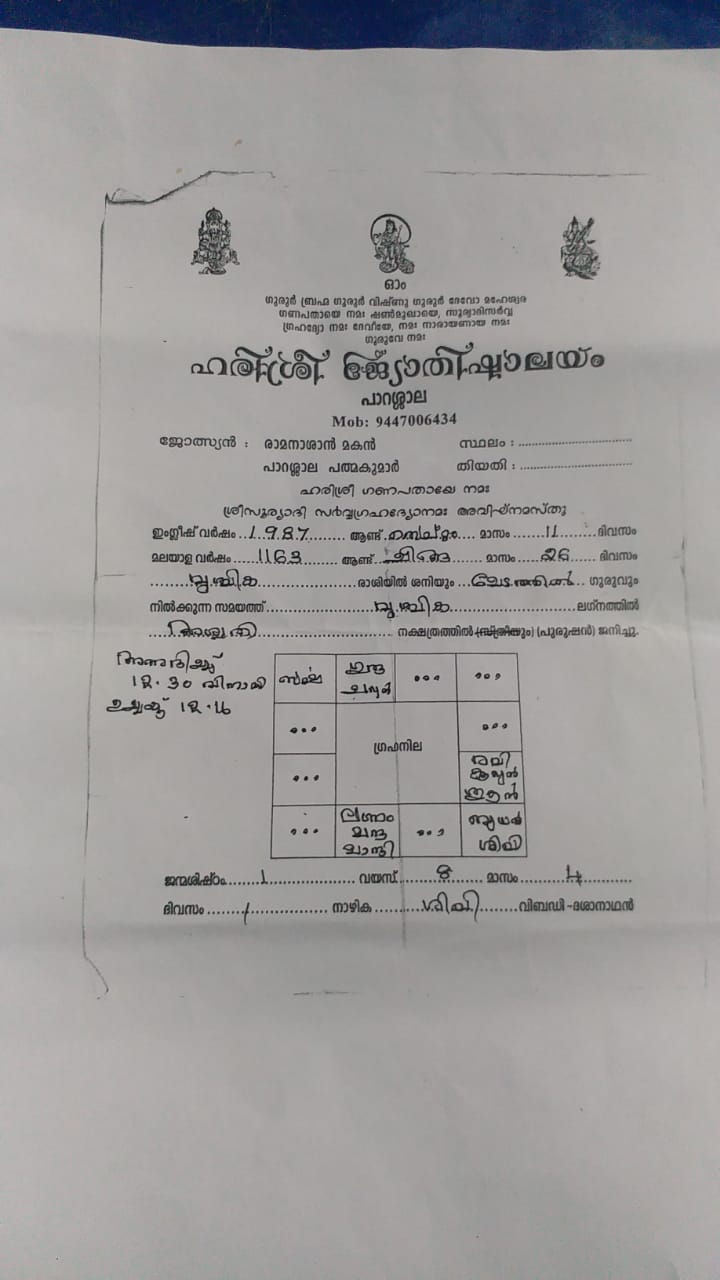 ഓം
ഗുരുർ ബ്രഹ്മ ഗുരുർ വിഷ്ണു ഗുരുർ ദേവോ മഹേശ്വര
ഗണപതായെ നമഃ ഷൺമുഖായെ, സൂര്യാദിസർവ്വ
ഗ്രഹദ്യോ നമഃ ദേവീയേ, നമഃ നാരായണായ നമഃ
ഗുരുവേ നമഃ
ഹരിശ്രീ ജ്യോതിഷാലയം
പാറശ്ശാല
Mob: 9447006434
ജോത്സ്യൻ : രാമനാശാൻ മകൻ സ്ഥലം :
പാറശ്ശാല പത്മകുമാർ തിയതി :
ഹരിശ്രീ ഗണപതായേ നമഃ
ശ്രീസൂര്യാദി സർവ്വഗ്രഹദ്യോനമഃ അവിഘ്നമസ്തു
ഇംഗ്ലീഷ് വർഷം 1987 ആണ്ട് മാസം 11 ദിവസം
മലയാള വർഷം 1163 ആണ്ട് ചിങ്ങ മാസം 26 ദിവസം
വൃശ്ചിക രാശിയിൽ ശനിയും മേടത്തിൽ ഗുരുവും
നിൽക്കുന്ന സമയത്ത് വൃശ്ചിക ലഗ്നത്തിൽ
അശ്വതി നക്ഷത്രത്തിൽ (സ്ത്രീയും) (പുരുഷൻ) ജനിച്ചു.
12.30 വിനാഴി
ഉച്ചയ്ക്ക് 12.16
സർപ്പ ഗുരു ചന്ദ്രൻ ... ...
... ഗ്രഹനില ...
... രവി കുജൻ ശുക്രൻ
... ലഗ്നം മന്ദ മാന്ദി ... ബുധൻ ശിഖി
ജന്മശിഷ്ടം 1 വയസ് 8 മാസം 4
ദിവസം 1 നാഴിക ശിഖി വിബഡി -ദശാനാഥൻ